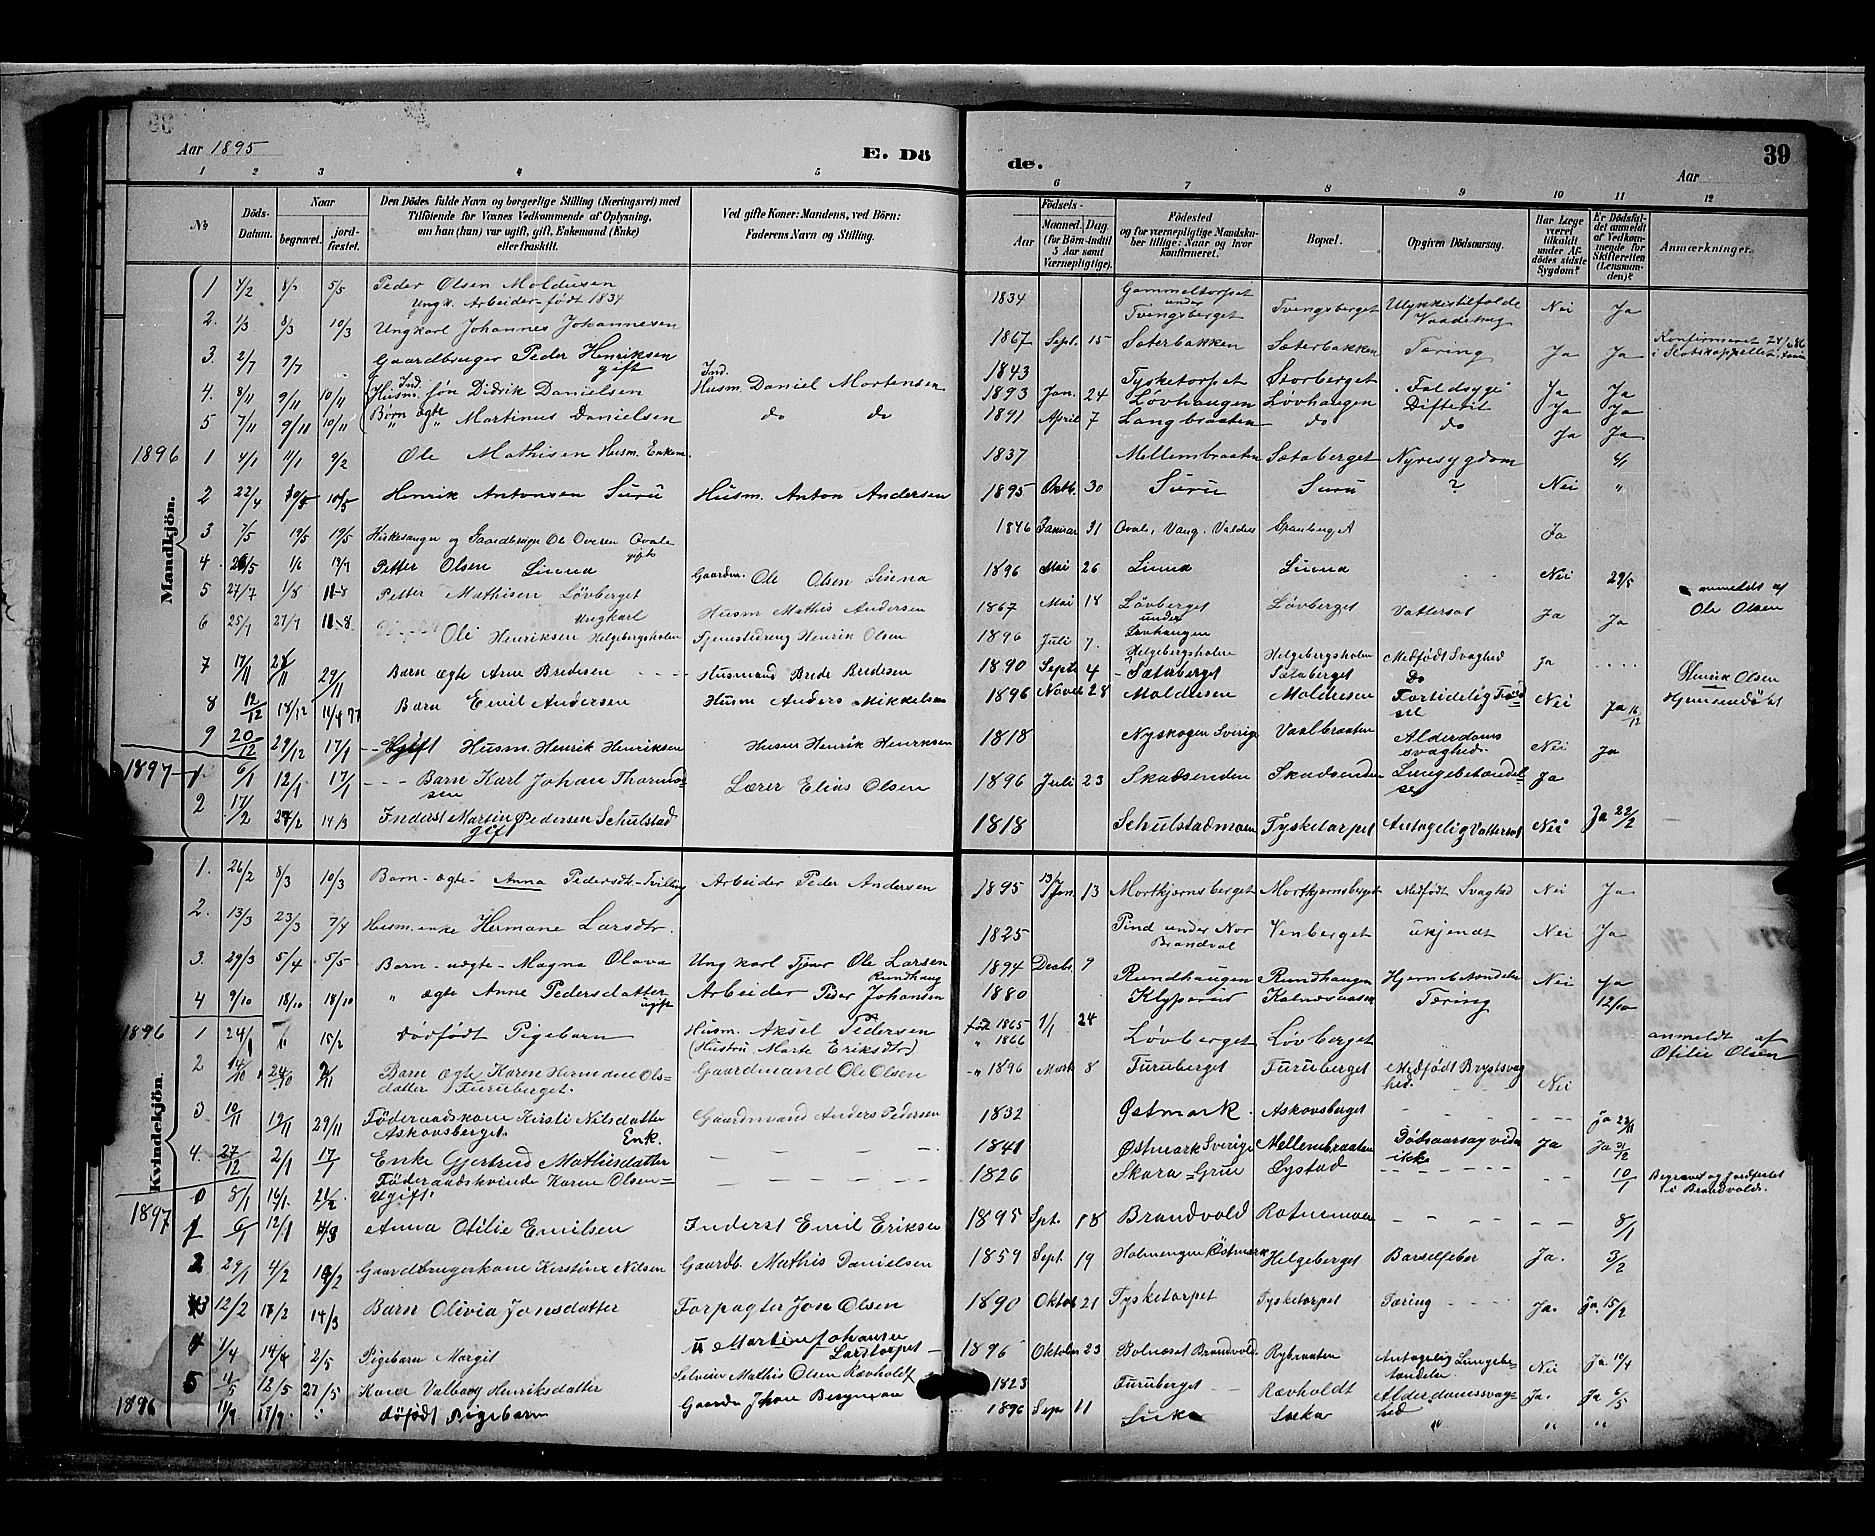 Aar 1895 E. Dö de. Aar 39
1 2 3 4 5 6 7 8 9 10 11 12
No Döds-Datum. Naar begravet. jord-fæstet. Den Dödes fulde Navn og borgerlige Stilling (Næringsvei) med Tilföiende for Voxnes Vedkommende af Oplysning, om han (hun) var ugift, gift, Enkemand (Enke) eller fraskilt. Ved gifte Koner: Mandens, ved Börn: Faderens Navn og Stilling. Födsels- Aar Maaned. Dag (for Börn indtil 5 Aar samt Værnepligtige). Födested og for værnepligtige Mandskaber tillige: Naar og hvor konfirmeret. Bopæl. Opgiven Dödsaarsag. Har Læge været tilkaldt under Afdödes sidste Sygdom? Er Dödsfaldet anmeldt af Vedkommende for Skifteretten (Lensmanden)? Anmærkninger.
Mandkjön.
1 4/2 5/5 Peder Olsen Moldusen 1834 Gammeltorpet Tvengsberget Ulykkestilfælde Nei Ja
Ungk. Arbeider født 1834 under Tvengsberget Vaadeskug
2. 1/3 8/3 10/3 Ungkarl Johannes Johannesen 1867 Sept. 15 Sæterbakken Sæterbakken Tæring Ja Ja Konfirmeret 24/6 86
i Slotskappellet
3. 2/7 9/7 Gaardbruger Peder Henriksen 1843 Tysketorpet Storberget Faldsyge Ja Ja
gift
4. 8/11 9/11 10/11 Ind. Husm. søn Didrik Danielsen Ind. Husm. Daniel Mortensen 1893 Jan. 24 Løvhaugen Løvhaugen Difterit Ja Ja
5 7/11 9/11 10/11 Børn ægte Martinus Danielsen do do 1891 April 7 Langbraaten do do Ja Ja
1896 1 4/1 11/1 9/2 Ole Mathisen Husm. Enkem. 1837 Mellembraaten Sætaberget Nyresygdom 4/1
2 22/4 10/5 Henrik Antonsen Suru Husm. Anton Andersen 1895 Oktb. 30 Suru Suru ? Nei "
3 7/5 19/5 19/5 Kirkesanger og Gaardbruger Ole Oversen Qvale 1846 Januar 31 Qvale, Vang, Valders Spanberget Ja
gift
4 26/5 1/6 19/7 Petter Olsen Lunna Gaardm. Ole Olsen Lunna 1896 Mai 26 Lunna Lunna Nei 29/5 anmeldt af
Ole Olsen
5 27/7 1/8 11-8 Petter Mathisen Løvberget Husm Mathis Andersen 1867 Mai 18 Løvberget Løvberget Vattersot Ja Ja
Ungkarl
6 25/7 27/7 11-8 Ole Henriksen Helgebergsholm Tjenestedreng Henrik Olsen 1896 Juli 7. under Helgebergsholm Helgebergsholm Medfødt Svaghed Ja Henrik Olsen
7 17/11 29/11 Barn ægte Arne Bredesen Husmand Brede Bredesen 1890 Septb 4 Sætaberget Sætaberget do
8 12/12 18/12 11/4 97 Barn Emil Andersen Husm Anders Mikkelsen 1896 Noveb 28 Moldusen Moldusen Fortidelig Fødsel Nei Ja 16/12 Hjemmedøbt
9 20/12 29/12 17/1 Gift Husm. Henrik Henriksen Husm Henrik Henriksen 1818 Nyskogen Sverige Vaalbraaten Alderdoms svaghed Nei Ja
1897 1. 6/1 12/1 17/1 Barn Karl Johan Thormosen Lærer Elias Olsen 1896 Juli 23 Skadsenden Skadsenden Lungebetændelse Ja
2 17/2 24/2 14/3 Inderst Martin Pedersen Schulstad 1818 Schulstadmoen Tysketorpet Antagelig Vattersot Nei Ja 22/2
gift
Kvindekjön.
1. 26/2 8/3 10/3 Barn-ægte-Anna Pedersdtr-Tvilling Arbeider Peder Andersen 1895 Jan. 13 Mortkjernsberget Mortkjernsberget Medfødt Svaghed Nei Ja
2. 13/3 23/3 7/4 Husm. enke Hermane Larsdtr. 1825 Pind under Nor Brandvol Venberget ukjendt Nei Ja
3. 29/3 5/4 5/5 Barn-uægte-Magna Olava Ungkarl Tjener Ole Larsen Rundhaug 1894 Decb. 9 Rundhaugen Rundhaugen Nei Ja
4 9/10 18/10 18/10 " ægte Anne Pedersdatter Arbeider Peder Johansen 1880 Klyperud Kalnæsaasen Tæring 12/10
ugift
1896 1 24/1 15/2 Dødfødt Pigebarn Husm. Aksel Pedersen født 1865 1/1 24 Løvberget Løvberget anmeldt af
(Hustru Marte Eriksdtr) " 1866 Otilie Olsen
2 14/10 24/10 Barn ægte Karen Hermane Olsdatter Furuberget. Gaardmand Ole Olsen 1896 Mark 8 Furuberget Furuberget Medfødt Brystsvaghed. Nei
3 10/11 19/11 29/11 Føderaadskone Kirsti Nilsdatter Gaardmand Anders Pedersen 1832 Østmark. Askovsberget Ja 23/11
Askovsberget. Enk.
4. 27/12 2/1 17/1 Enke Gjertrud Mathisdatter 1841 Østmark Sverige Mellembraaten Dødsaarsag vides ikke Ja Ja
0 8/1 16/1. 21/2 Føderaadskvinde Karen Olsen 1826 Skara-Grue Øystad 10/1 Begravet og jordfæstet
Ugift. i Brandvold.
1897 1 6/1 12/1 Anna Otilie Emilsen Inderst Emil Eriksen 1895 Spt. 18 Brandvold Rotnemoen 8/1
2 29/1 4/2 Gaardbrugerkone Kerstine Nilsen Gaardb. Mathis Danielsen 1859 Sept. 19 Holmengen Østmark Helgeberget Barselfeber Ja. 3/2
3 12/2 17/2 14/3 Barn Olivia Jonsdatter Forpagter Jon Olsen 1890 Oktob 21 Tysketorpet Tysketorpet Tæring Ja. Ja. 15/2
4 1/4 14/4 2/5 Pigebarn Margit Martin Johansen 1896 Oktober 23 Bolnæset Brandvold. Rybraaten Antagelig Lungebetændelse Nei Ja. 10/4
Lardtorpet
5 4/5 12/5 27/5 Kone Valborg Henriksdatter Selveier Mathis Olsen Rævholdt 1823 Furuberget Rævholdt Alderdomssvaghed Ja. Ja 6/5
1896 11/9 17/9 døfødt Pigebarn Gaardm Johan Bergersen 1896 Sep 11 Luka " " "